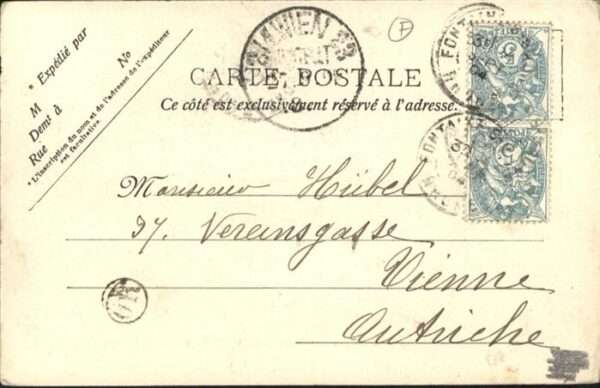 * Expédié par
No
M
Demt à
Rue
* L'inscription du nom et de l'adresse de l'expéditeur
est facultative.
WIEN
CARTE POSTALE
Ce côté est exclusivement réservé à l'adresse.
F
Monsieur Hübel
37. Vereinsgasse
Vienne
Autriche